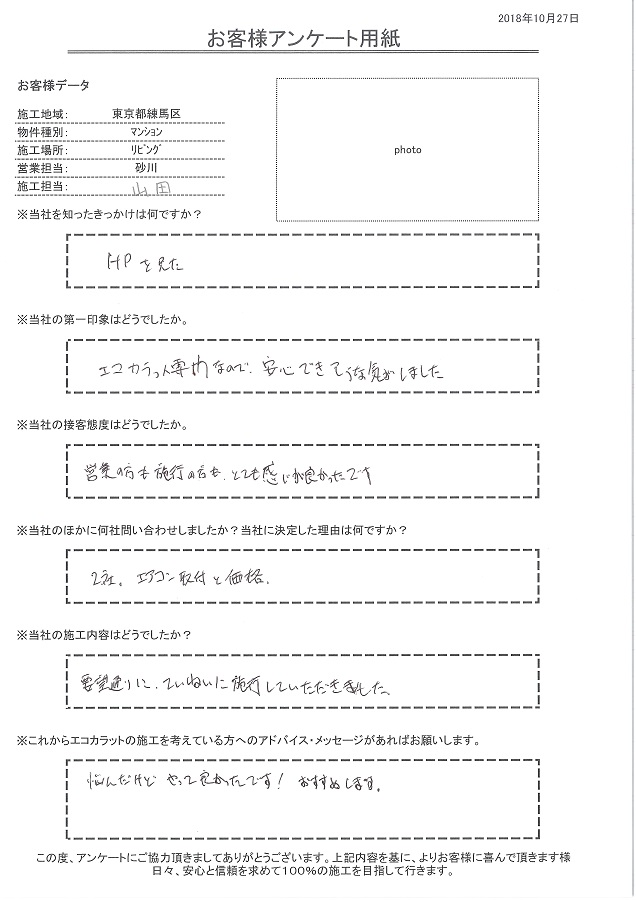 2018年10月27日
お客様アンケート用紙
お客様データ
施工地域: 東京都練馬区
物件種別: ﾏﾝｼｮﾝ
施工場所: ﾘﾋﾞﾝｸﾞ
営業担当: 砂川
施工担当: 山田
photo
※当社を知ったきっかけは何ですか？
HPを見た
※当社の第一印象はどうでしたか。
エコカラット専門なので、安心できそうな気がしました
※当社の接客態度はどうでしたか。
営業の方も施行の方も、とても感じが良かったです
※当社のほかに何社問い合わせしましたか？当社に決定した理由は何ですか？
2社。エアコン取付と価格。
※当社の施工内容はどうでしたか？
要望通りに、ていねいに施行していただきました。
※これからエコカラットの施工を考えている方へのアドバイス・メッセージがあればお願いします。
悩んだけど やって良かったです！ おすすめします。
この度、アンケートにご協力頂きましてありがとうございます。上記内容を基に、よりお客様に喜んで頂きます様
日々、安心と信頼を求めて100％の施工を目指して行きます。